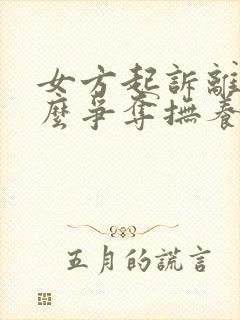 女方起訴離
麼爭奪撫養
五月的謊言